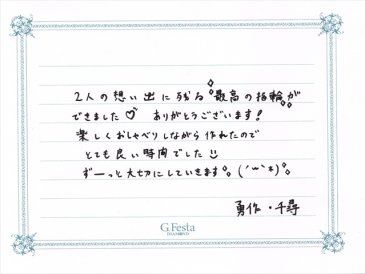 2人の想い出に残る最高の指輪が
できました♡ ありがとうございます!
楽しくおしゃべりしながら作れたので
とても良い時間でした
ずーっと大切にしていきます。(´ω`*)
勇作・千尋
G.Festa
DIAMOND